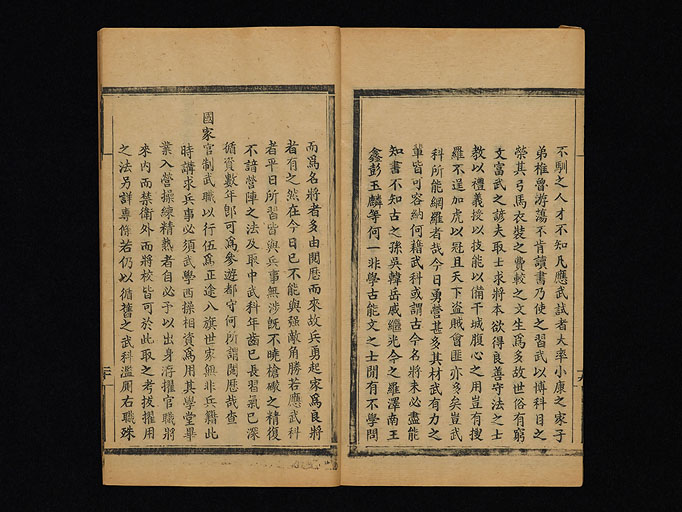 不馴之人才不知凡應武試者大率小康之家子
弟椎魯游蕩不肯讀書乃使之習武以博科目之
榮其弓馬衣裝之費較之文生爲多故世俗有窮
文富武之諺夫取士求將本欲得良善守法之士
教以禮義授以技能以備干城腹心之用豈有搜
羅不逞加虎以冠且天下盜賊會匪亦多矣豈武
科所能網羅者哉今日勇營甚多其材武有力之
軍皆可容納何稽武科或謂古今名將未必盡能
知書不知古之孫吳韓岳戚繼光今之羅澤南王
鑫彭玉麟等何一非學古能文之士間有不學問
而爲名將者多由閱歷而來故兵勇起家爲良將
者有之然在今日已不能與强敵角勝若應武科
者平日所習皆與兵事無涉旣不曉槍礮之精復
不諳營陣之法及取中武科年齒已長習氣已深
循資數年卽可爲參遊都守何所謂閱歷哉查
國家官制武職以行伍爲正途八旗世家無非兵籍此
時講求兵事必須武學西操相資爲用其學堂畢
業入營操練精熟者自必予以出身洊擢官職將
來內而禁衛外而將校皆可於此取之考拔擢用
之法另詳專條若仍以循舊之武科濫厠右職殊